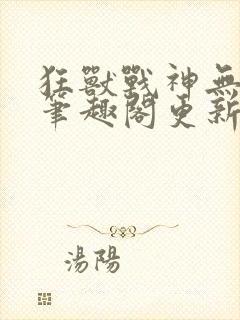 狂獸戰神無
筆趣閣更新
湯陽